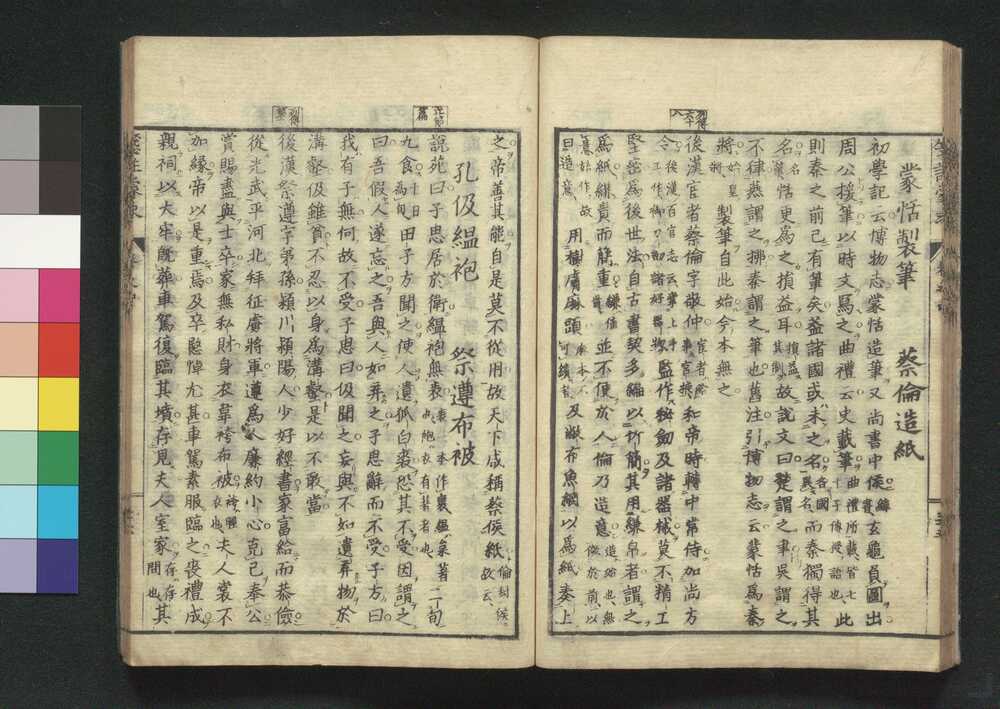 蒙恬製筆　蔡倫造紙
初學記云博物志蒙恬造筆又尚書中候玄龜負圖出
周公援筆以時文寫之曲禮云史載筆此
則秦之前已有筆矣蓋諸國或未之名而秦獨得其
名恬更為之損益耳故說文曰楚謂之聿吳謂之
不律燕謂之拂秦謂之筆也舊注引博物志云蒙恬為秦
將製筆自此始今本無之
後漢宦者蔡倫字敬仲和帝時轉中常侍加尚方
令監作祕劒及諸器械莫不精工
堅密為後世法自古書契多編以竹簡其用縑帛者謂之
為紙縑貴而簡重並不便於人倫乃造意
用樹膚麻頭及敝布魚網以為紙奏上
之帝善其能自是莫不從用故天下咸稱蔡侯紙
孔伋縕袍　祭遵布被
說苑曰子思居於衛縕袍無表二旬
九食田子方聞之使人遺狐白裘恐其不受因謂之
曰吾假人遂忘之吾與人如弃之子思辭而不受子方曰
我有子無何故不受子思曰伋聞之妄與不如遺弃物於
溝壑伋雖貧不忍以身為溝壑是以不敢當
後漢祭遵字弟孫潁川潁陽人少好經書家富給而恭儉
從光武平河北拜征虜將軍遵為人廉約小心克己奉公
賞賜盡與士卒家無私財身衣韋袴布被夫人裳不
加緣帝以是重焉及卒愍悼尤甚車駕素服臨之喪禮成
親祠以大牢既葬車駕復臨其墳存見夫人室家其